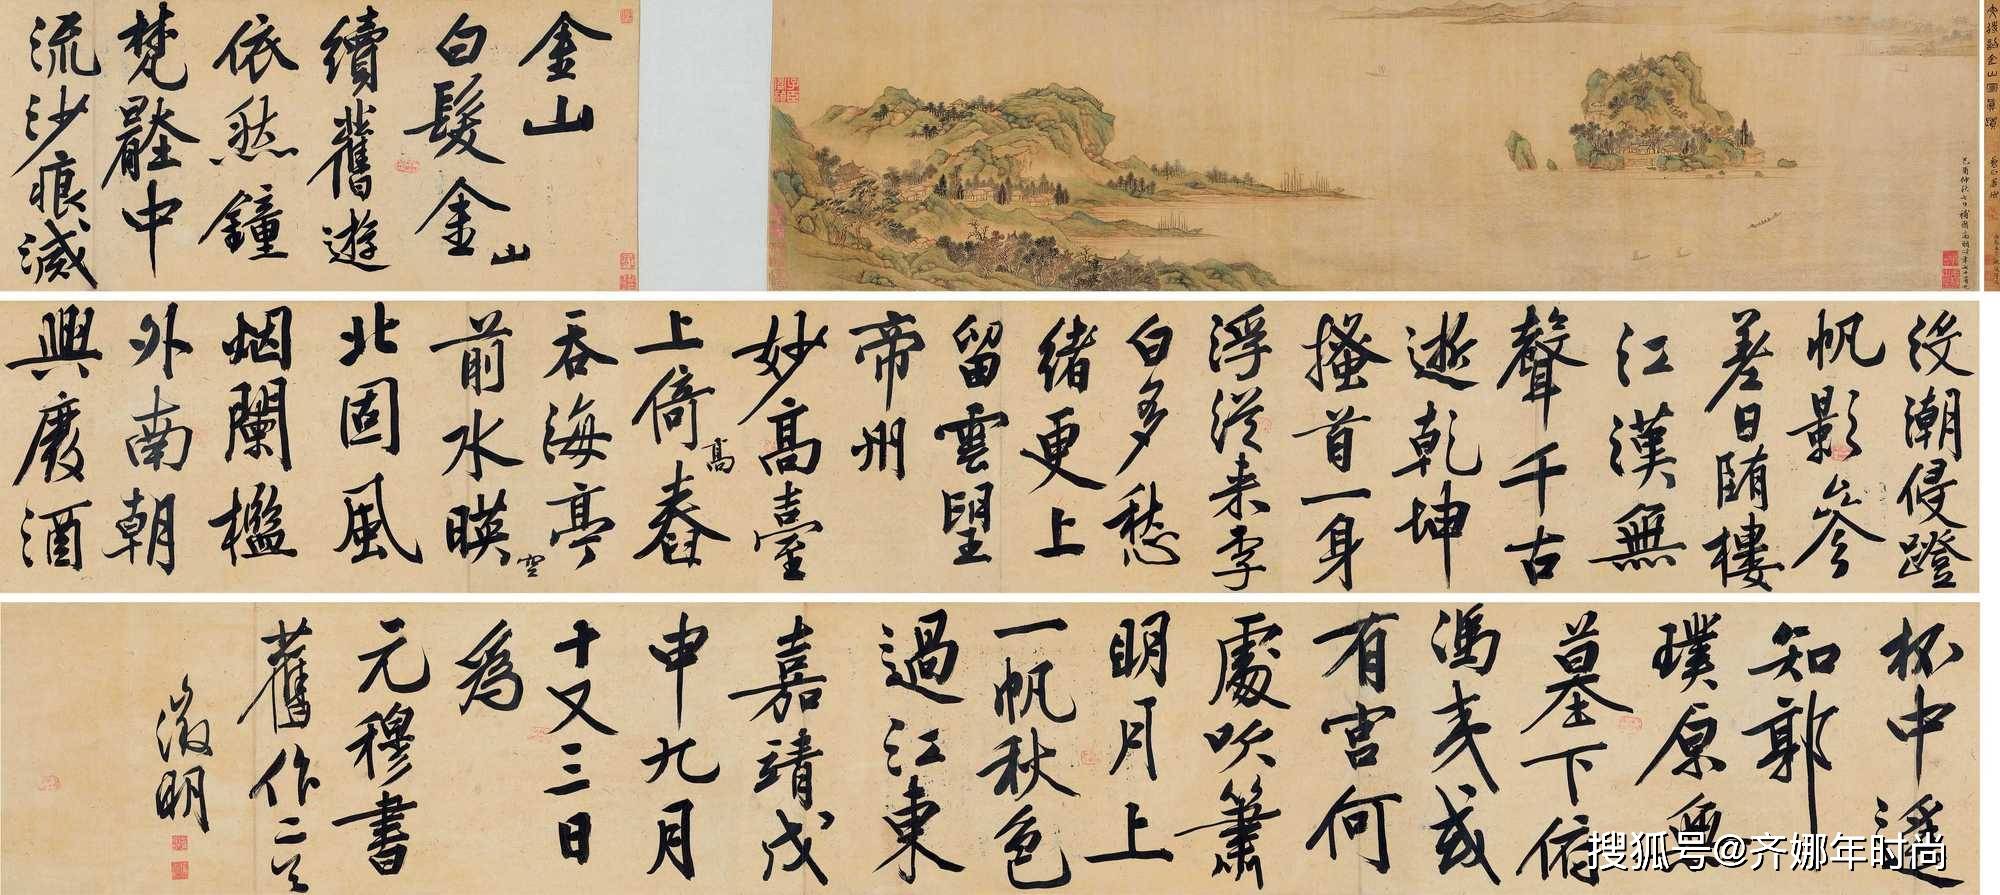 文待詔金山圖真蹟
己酉仲秋七日補圖
金山
白髮金山
續舊遊
依然鐘
梵壑中
流沙痕減
没潮侵蹬
帆影參
差日陏樓
江漢無
聲千古
逝乾坤
搔首一身
浮從来李
白多愁
緒更上
留雲望
帝州
妙高臺
上倚高舂
吞海亭
前水暎空
北固風
烟闌檻
外南朝
興廢酒
杯中遥
知郭
璞原無
墓下俯
馮夷或
有宮何
處吹簫
明月上
一帆秋色
過江東
嘉靖戊
申九月
十又三日
為
元穆書
舊作二首
徵明
搜狐号@齐娜年时尚